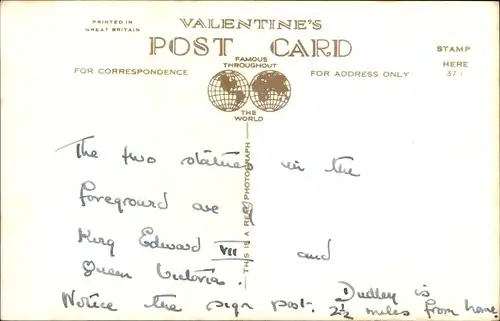 PRINTED IN
GREAT BRITAIN
VALENTINE'S
POST CARD
STAMP
HERE
FOR CORRESPONDENCE
FAMOUS
THROUGHOUT
THE
WORLD
FOR ADDRESS ONLY
THIS IS A REAL PHOTOGRAPH
The two statues in the
foreground are of
King Edward VII and
Queen Victoria.
Notice the sign post.
Dudley is
2½ miles from home